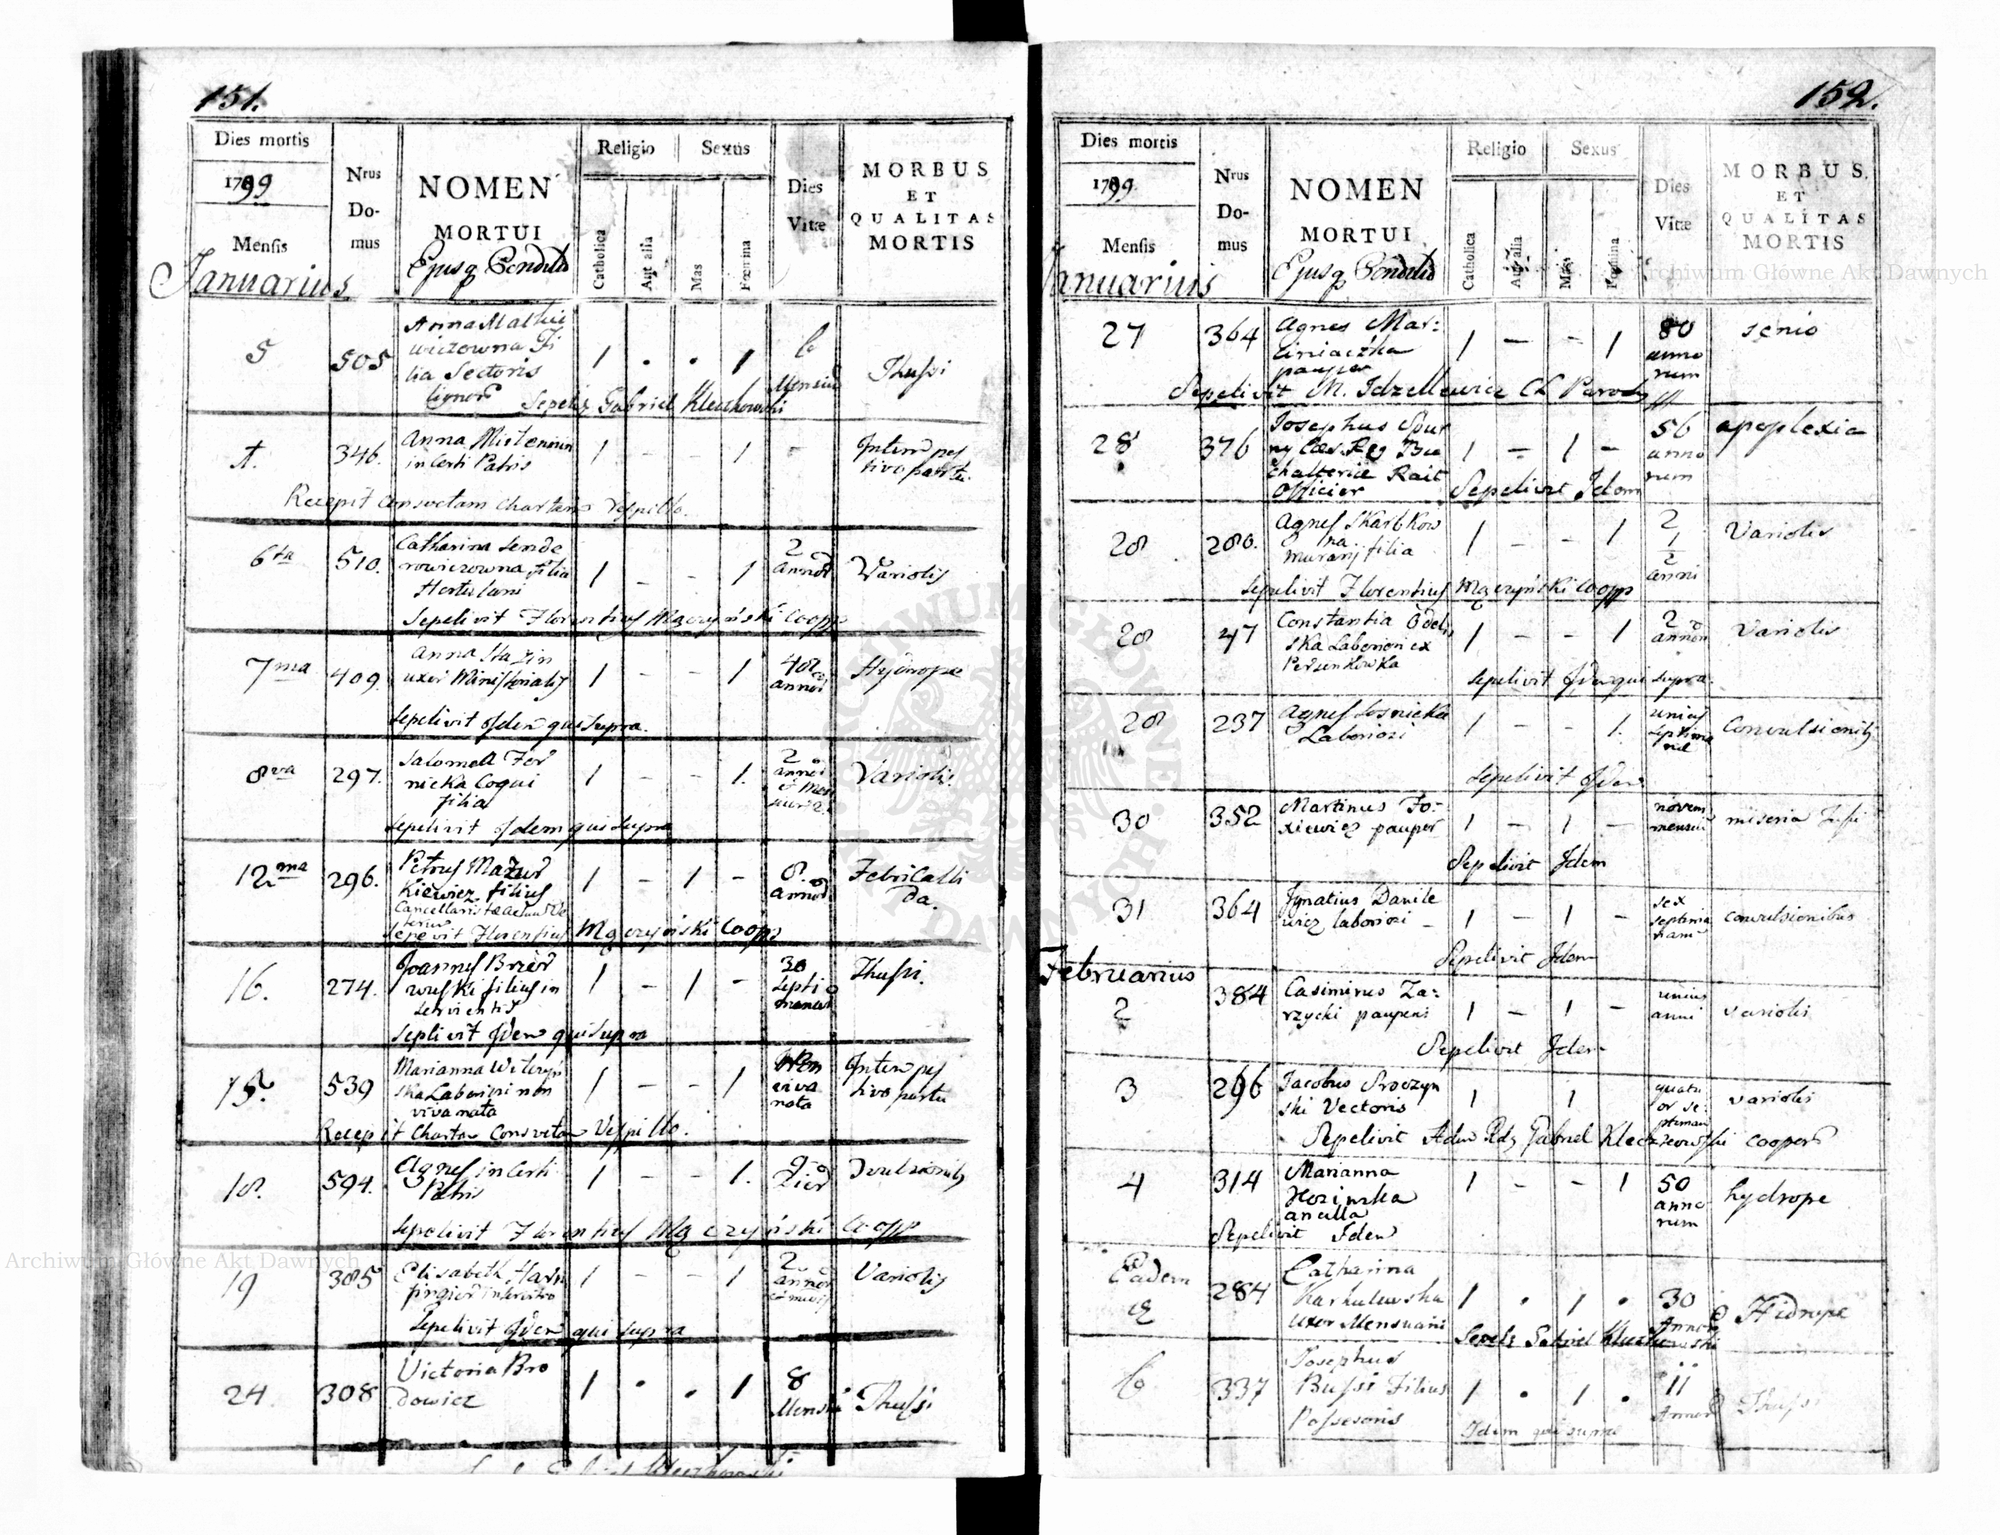 151.
Dies mortis
1799
Mensis
Januarius
Nrus
Do-
mus
NOMEN
MORTUI
Ejusq Conditio
Religio
Catholica
Aut alia
Sexus
Mas
Fæmina
Dies
Vitæ
MORBUS
ET
QUALITAS
MORTIS
5 505 Anna Mathie
wiczowna Fi
lia Sectoris
lignor
1 . . 1 6
Mensiu
Thussi
Sepel: Gabriel Kleczkowski
346. Anna
incerti Patris
1 - - 1 -
Intempes
tivo partu.
Recepit Consvetam Chartam Vespillo.
6ta 510. Catharina Sende
rowiczowna filia
Hortulani
1 - - 1 2
annor
Variolis
Sepelivit Florentius Mączyński Coopr
7ma 409. Anna Stazin
uxor Ministerialis
1 - - 1 40
annor
Hydrope
Sepelivit Idem qui Supra.
8va 297. Salomea For
nicka Coqui
filia
1 - - 1. 2
annor
et Men
sium 2.
Variolis.
Sepelivit Idem qui Supra
12ma 296. Petrus Mazur
Kiewicz filius
Cancellaristæ
1 - 1 - 8.
annor
Febri Calli
da.
Sepelivit Florentius Mączyński Coopr
16. 274. Joannes
filius in
servientis
1 - 1 - 30
Septi
manar
Thussi.
Sepelivit Idem qui Supra
15. 539 Marianna
ska Laboriosi non
viva nata
1 - - 1 Non
viva
nata
Intempes
tivo partu
Recepit Chartam Consvetam Vespillo.
18. 594. Agnes incerti
Patris
1 - - 1. 2
Dier
Sepelivit Florentius Mączyński Coopr
19 385 Elisabeth
1 - - 1 2
annor
Variolis
Sepelivit Idem qui supra
24 308 Victoria Bro
dowicz
1 . . 1 8
Mensiu
Thussi
Kleczkowski
152.
Dies mortis
1799.
Mensis
Januarius
Nrus
Do-
mus
NOMEN
MORTUI
Ejusq Conditio
Religio
Catholica
Aut alia
Sexus
Mas
Fæmina
Dies
Vitæ
MORBUS
ET
QUALITAS
MORTIS
27 364 Agnes Mar-
ciniaczka
pauper
1 - - 1 80
anno
rum
senio
Sepelivit M. Idzellewicz
28 376 Josephus
ny Cæs. Reg Bu
chalteriæ Rait
Officier
1 - 1 - 56
anno
rum
apoplexia
Sepelivit Idem
28 280. Agnes Skarbkow
na
murarij filia
1 - - 1 2
1
2
anni
Variolis
Sepelivit Florentius Mączyński Coopr
28 47 Constantia
ska Laboriosi ex
Persenkowka
1 - - 1 2
annor
Variolis
Sepelivit Idem qui supra.
28 237 Agnes Sosnicka
Laboriosi
1 - - 1. unius
septima
næ
Convulsionib
Sepelivit Idem
30 352 Martinus
pauper
1 - 1 - novem
mensiu
miseria
Sepelivit Idem
31 364 Ignatius Danile
wicz laboriosi
1 - 1 - sex
septima
nar
convulsionibus
Sepelivit Idem
Februarius
2 384 Casimirus Za-
rzycki pauperis
1 - 1 - unius
anni
variolis
Sepelivit Idem
3 296 Jacobus Proczyn
ski Vectoris
1 1 quatu
or se-
ptiman
variolis
Sepelivit Adm Rdz Gabriel Kleczkowski cooper
4 314 Marianna
ancilla
1 - - 1 50
anno
rum
hydrope
Sepelivit Idem
Eadem 284 Catharina
Karkulewska
Uxor
1 . 1 . 30
Annor
Hidrope
Sepelz Gabriel Kleczkowski
6 337 Josephus
Bussi Filius
Possesoris
1 . 1 . 11
Annor
Thussi
Idem qui supra
Archiwum Główne Akt Dawnych
Archiwum Główne Akt Dawnych
ARCHIWUM GŁÓWNE AKT DAWNYCH